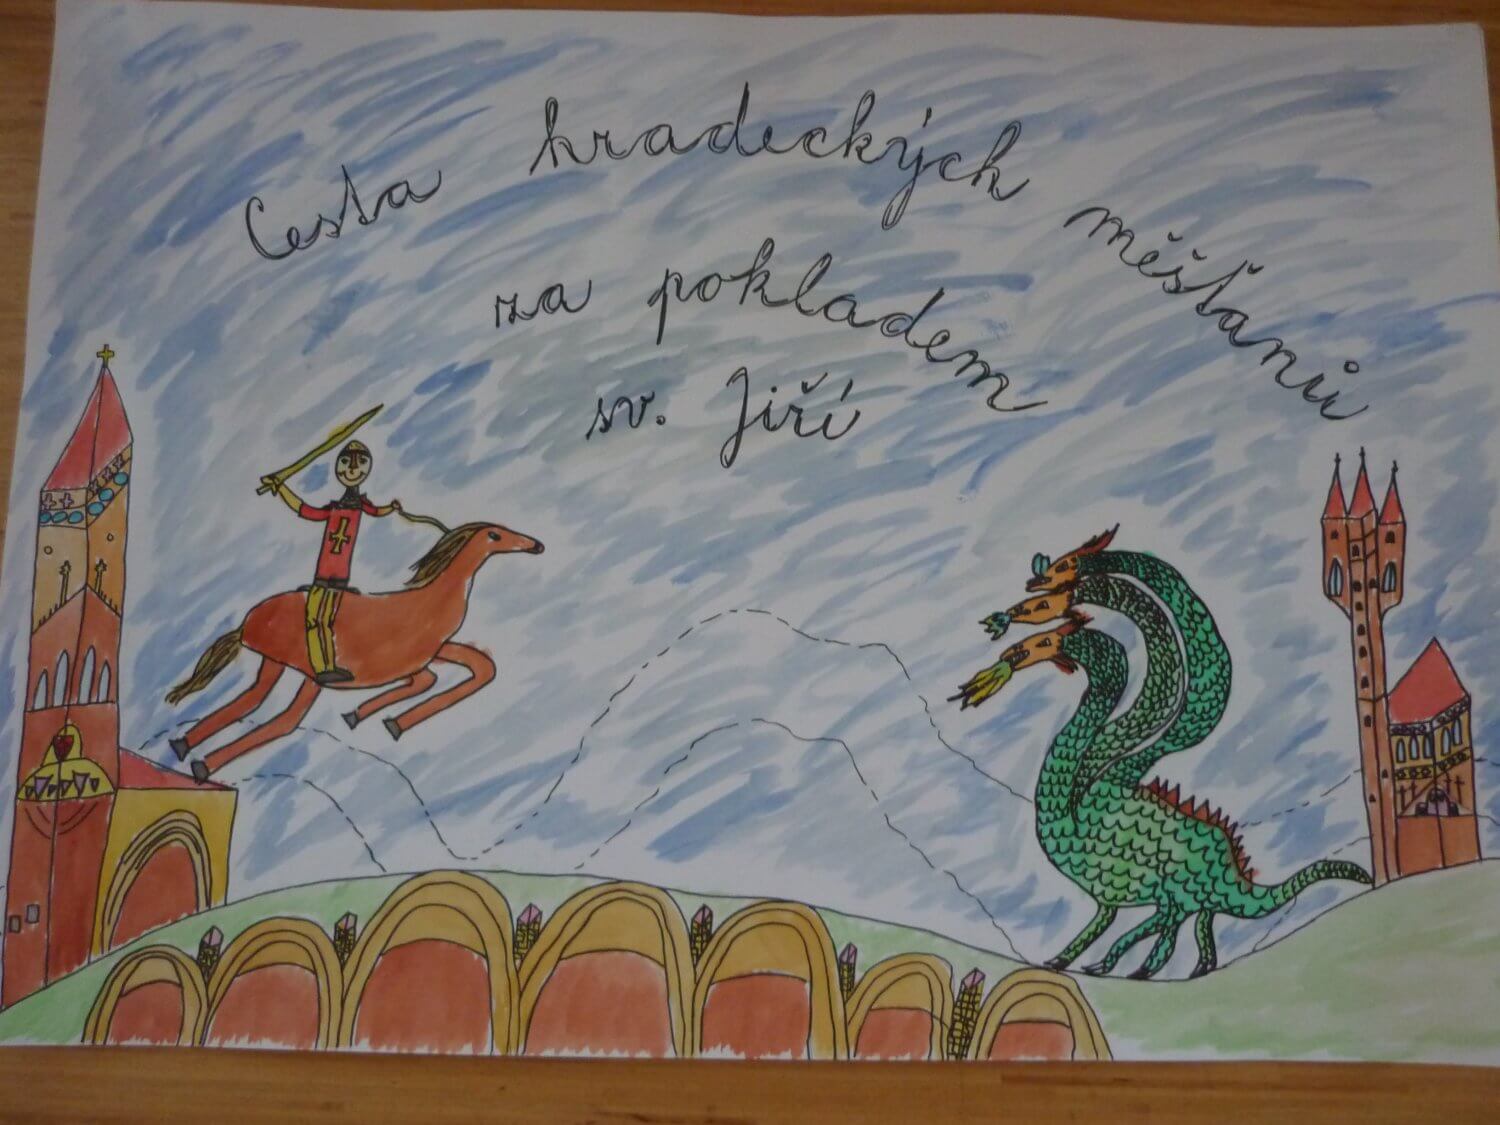 Cesta hradeckých měšťanů
za pokladem
sv. Jiří